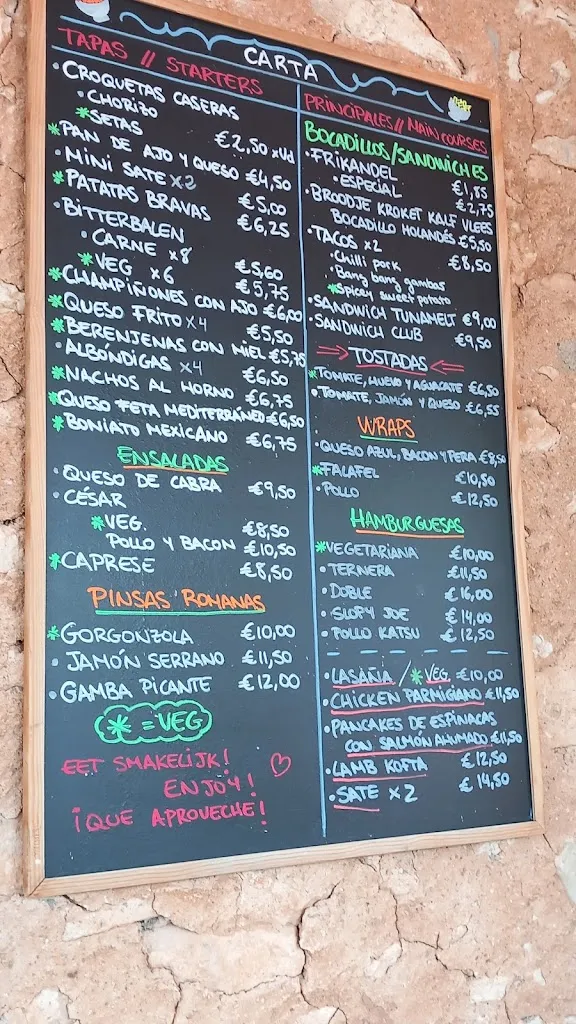 CARTA
TAPAS // STARTERS
• CROQUETAS CASERAS
• CHORIZO
* SETAS €2,50 x Ud
* PAN DE AJO Y QUESO €4,50
• MINI SATE x2 €5,00
* PATATAS BRAVAS €6,25
• BITTERBALEN
• CARNE x8 €5,60
* VEG x6 €5,75
* CHAMPIÑONES CON AJO €6,00
* QUESO FRITO x4 €5,50
* BERENJENAS CON MIEL €5,75
• ALBÓNDIGAS x4 €6,50
* NACHOS AL HORNO €6,75
* QUESO FETA MEDITERRÁNEO €6,50
* BONIATO MEXICANO €6,75
ENSALADAS
• QUESO DE CABRA €9,50
• CÉSAR
* VEG. €8,50
POLLO Y BACON €10,50
* CAPRESE €8,50
PINSAS ROMANAS
* GORGONZOLA €10,00
• JAMÓN SERRANO €11,50
• GAMBA PICANTE €12,00
* = VEG
EET SMAKELIJK!
ENJOY!
¡QUE APROVECHE!
PRINCIPALES // MAIN COURSES
BOCADILLOS/SANDWICHES
• FRIKANDEL €1,85
• ESPECIAL €2,75
• BROODJE KROKET KALF VLEES
BOCADILLO HOLANDÉS €5,50
• TACOS x2 €8,50
• Chilli pork
• Bang bang gambas
* Spicey sweet potato
• SANDWICH TUNAMELT €9,00
• SANDWICH CLUB €9,50
TOSTADAS
* TOMATE, HUEVO Y AGUACATE €6,50
• TOMATE, JAMÓN Y QUESO €6,55
WRAPS
• QUESO AZUL, BACON Y PERA €8,50
* FALAFEL €10,50
• POLLO €12,50
HAMBURGUESAS
* VEGETARIANA €10,00
• TERNERA €11,50
• DOBLE €16,00
• SLOPY JOE €14,00
• POLLO KATSU €12,50
• LASAÑA / * VEG €10,00
• CHICKEN PARMIGIANO €11,50
• PANCAKES DE ESPINACAS
CON SALMÓN AHUMADO €11,50
• LAMB KOFTA €12,50
• SATE x2 €14,50